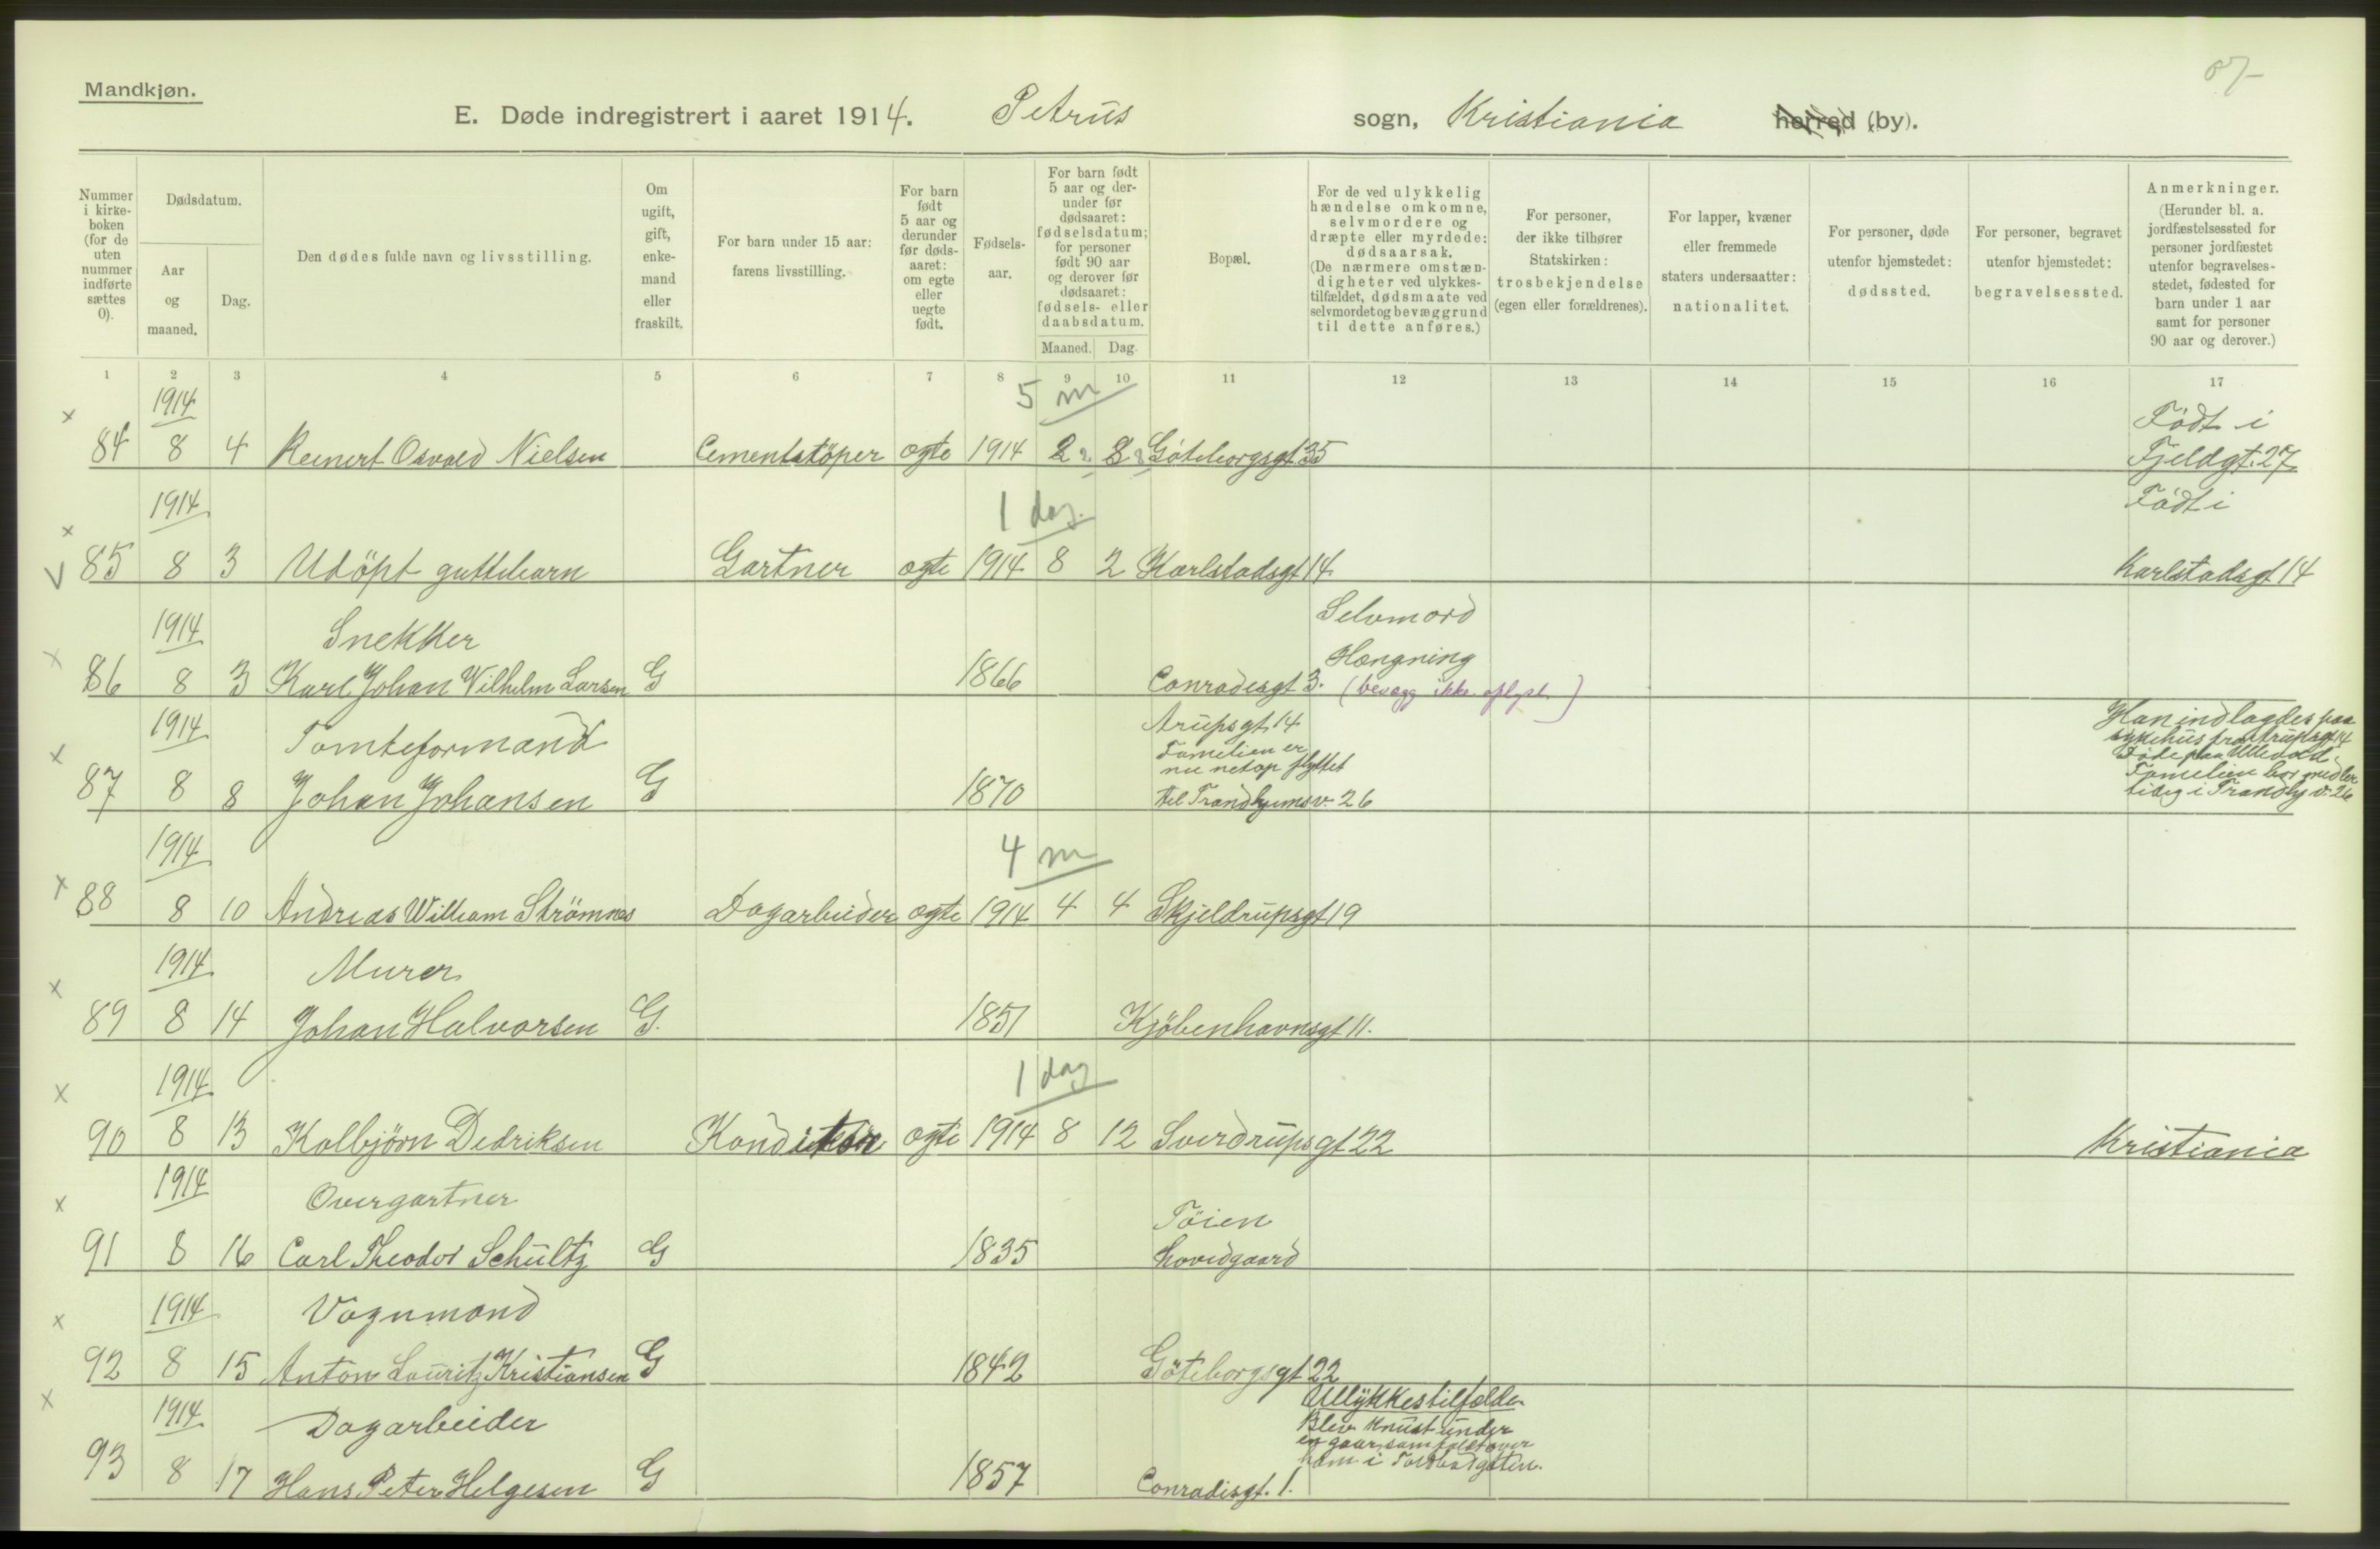 87
Mandkjøn.
E. Døde indregistrert i aaret 1914. Petrus sogn, Kristiania herred (by).
Nummer i kirkeboken (for de uten nummer indførte sættes 0).
Dødsdatum.
Aar og maaned.
Dag.
Den dødes fulde navn og livsstilling.
Om ugift, gift, enkemand eller fraskilt.
For barn under 15 aar: farens livsstilling.
For barn født 5 aar og derunder før dødsaaret: om egte eller uegte født.
Fødselsaar.
For barn født 5 aar og derunder før dødsaaret: fødselsdatum; for personer født 90 aar og derover før dødsaaret: fødsels- eller daabsdatum.
Maaned. Dag.
Bopæl.
For de ved ulykkelig hændelse omkomne, selvmordere og dræpte eller myrdede: dødsaarsak. (De nærmere omstændigheter ved ulykkestilfældet, dødsmaate ved selvmordet og bevæggrund til dette anføres.)
For personer, der ikke tilhører Statskirken: trosbekjendelse (egen eller forældrenes).
For lapper, kvæner eller fremmede staters undersaatter: nationalitet.
For personer, døde utenfor hjemstedet: dødssted.
For personer, begravet utenfor hjemstedet: begravelsessted.
Anmerkninger. (Herunder bl. a. jordfæstelsessted for personer jordfæstet utenfor begravelsesstedet, fødested for barn under 1 aar samt for personer 90 aar og derover.)
1 2 3 4 5 6 7 8 9 10 11 12 13 14 15 16 17
1914 5 m Födt i
84 8 4 Reinert Osvald Nielsen Cementstöper egte 1914 2 2 8 8 Göteborgsgt 35 Fjeldgt. 27
1914 1 dag. Födt i
85 8 3 Udöpt guttebarn Gartner egte 1914 8 2 Karlstadsgt 14 Karlstadsgt 14
1914 Snekker Selvmord
Hængning
86 8 3 Karl Johan Wilhelm Larsen G 1866 Conradisgt 3. (bevægg ikke oplyst)
1914 Tomteformand Arupsgt. 14 Han indlagdes paa
Familien er sykehus fra Arupsgt 14
nu netop flyttet Döde paa Ullevaal
87 8 8 Johan Johansen G 1870 til Trondhjemsv. 26 Familien bor midler
tidig i Trondhj v. 26
1914 4 m
88 8 10 Andreas William Strömnes Dagarbeider egte 1914 4 4 Skjeldrupsgt 19
1914 Murer
89 8 14 Johan Halvorsen G. 1851 Kjöbenhavnsgt 11.
1914 1 dag
90 8 13 Kolbjörn Dedriksen Konditor egte 1914 8 12 Sverdrupsgt 22 Kristiania
1914 Overgartner Töien
91 8 16 Carl Theodor Schultz G 1835 hovedgaard
1914 Vognmand
92 8 15 Anton Lauritz Kristiansen G 1842 Göteborgsgt 22
1914 Dagarbeider Ullykkestilfælde.
Blev knust under
en som faldt over
93 8 17 Hans Peter Helgesen G 1857 Conradisgt. 1. ham i Toldbodgaten.